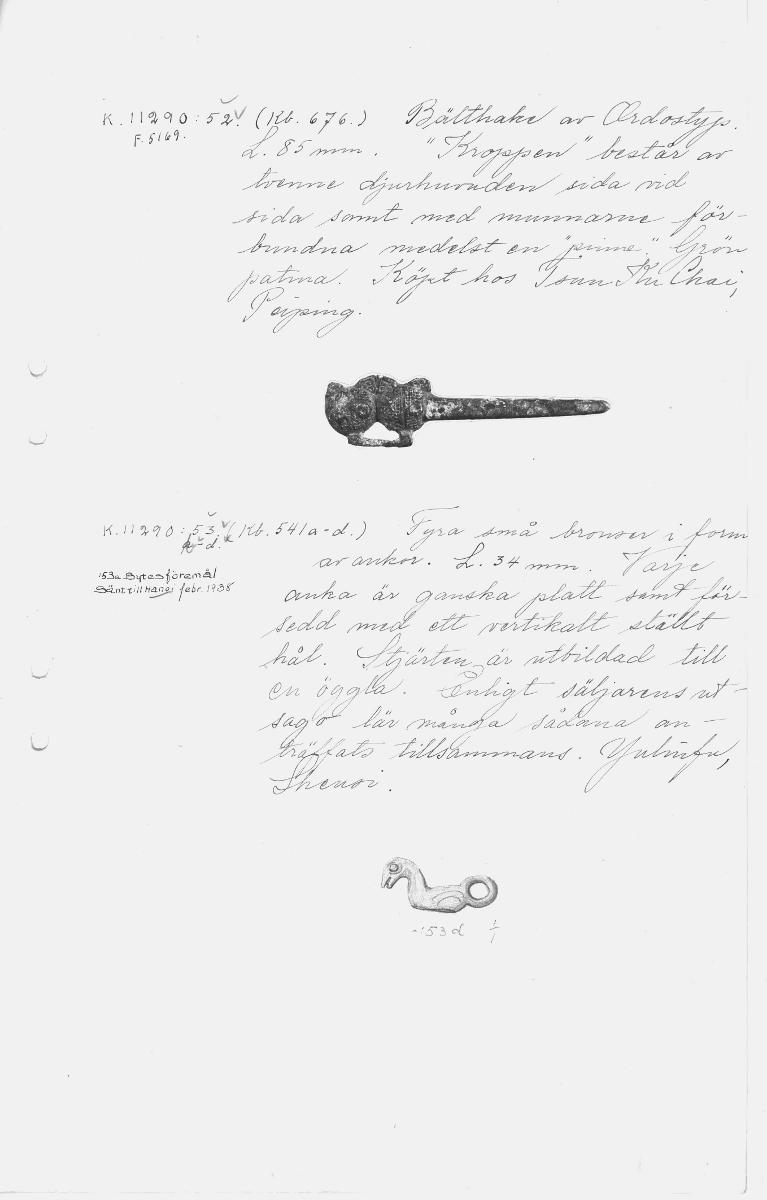 K. 11290:52. (Kb. 676.) Bälthake av Ordostyp.
F. 5169.
L. 85 mm. "Kroppen" består av
tvenne djurhuvuden sida vid
sida samt med munnarne för-
bundna medelst en "pinne." Grön
patina. Köpt hos Tsun Ku Chai,
Peiping.
K. 11290:53 (Kb. 541a-d.) Fyra små bronser i form
a-d.
av ankor. L. 34 mm. Varje
:53a Bytesföremål
Sänt till Hanoi febr. 1938
anka är ganska platt samt för-
sedd med ett vertikalt ställt
hål. Stjärten är utbildad till
en öggla. Enligt säljarens ut-
sago lär många sådana an-
träffats tillsammans. Yulinfu,
Shensi.
-:53d 1/1